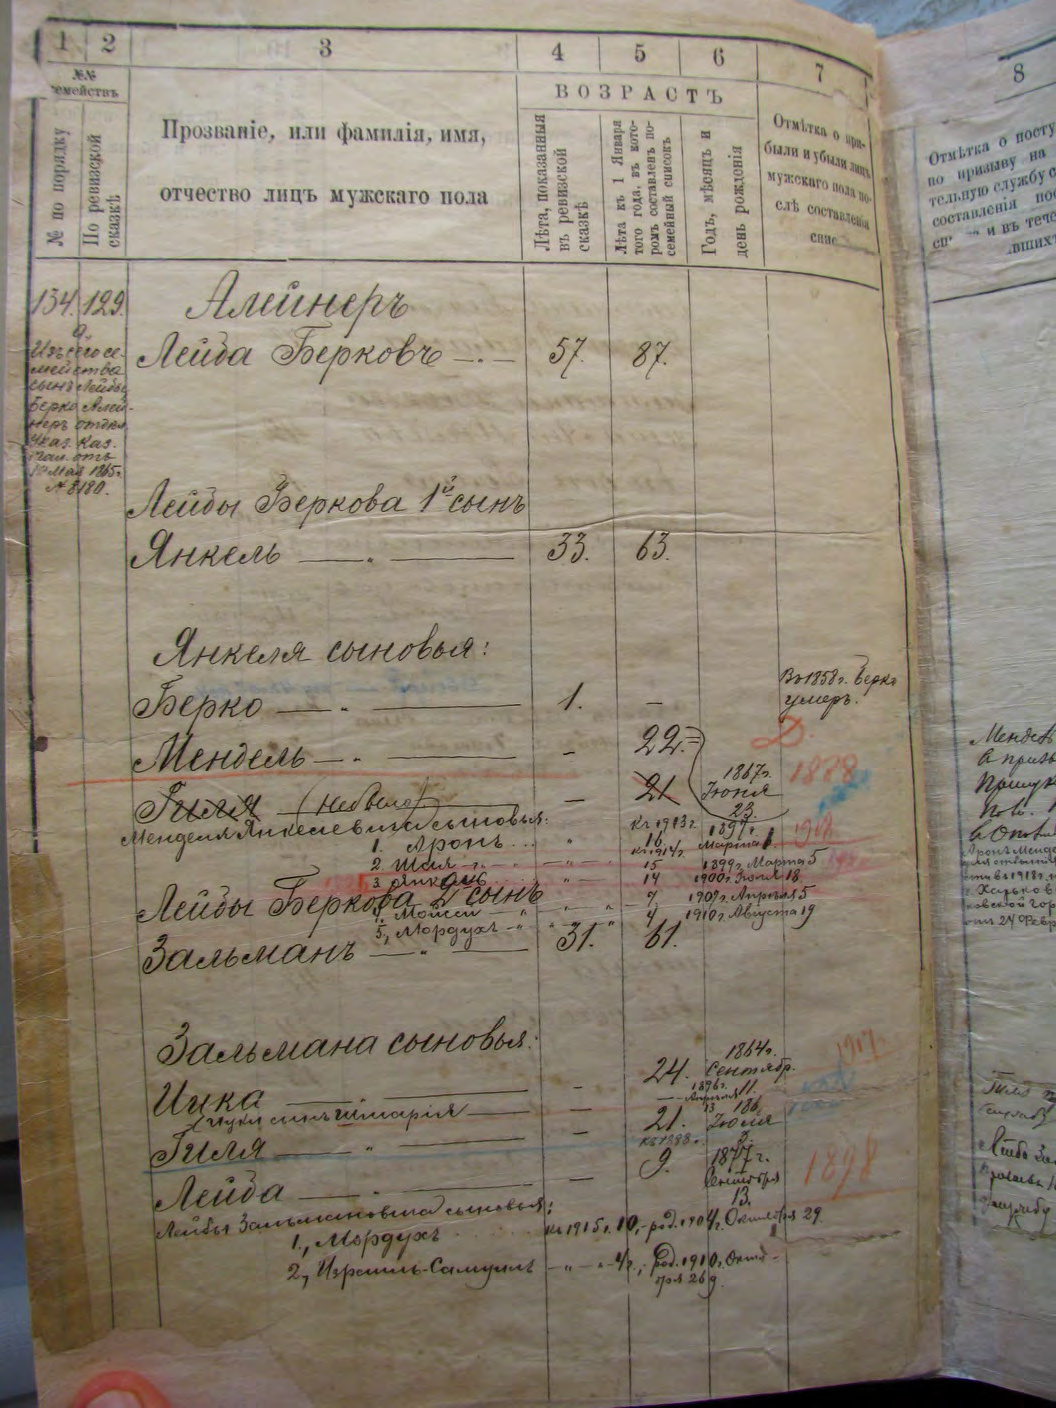 1 2 3 4 5 6 7
№№ семействъ
№ по порядку
По ревизской сказкѣ
Прозваніе, или фамилія, имя,
отчество лицъ мужскаго пола
ВОЗРАСТЪ
Лѣта, показанныя
въ ревизской
сказкѣ
Лѣта къ 1 Января
того года, въ кото-
ромъ составленъ по-
семейный списокъ
Годъ, мѣсяцъ и
день рожденія
Отмѣтка о при-
были и убыли лицъ
мужскаго пола по-
слѣ составленія
8
Отмѣтка о
по призыву на
тельную службу
составленія
и въ
134. 129.
Алейнеръ
Лейба Берковъ 57. 87.
Изъ сего се-
мейства
сынъ Лейбы
Берко Алей-
неръ отдѣл.
Указ. Каз.
Пал. отъ
10 Мая 1865 г.
№ 8180.
Лейбы Беркова 1й сынъ
Янкель — " — 33. 63.
Янкеля сыновья:
Берко — " — 1. —
Въ 1858 г. Берко
умеръ.
Мендель — " — - 22.
1888
Гиля (Небыло) — 21.
1867 г.
Іюня
23.
Менделя Янкелевича сыновья:
Къ 1913 г. 1897 г.
1. Аронъ 16 Марта 1.
Къ 1914 г.
2. Шая 15 1899 г. Марта 5
3. Янкель 14 1900 г. Іюля 18
Лейбы Беркова 2й сынъ
4, Мойсей 7 1907 г. Апрѣля 5
5, Мордухъ 4 1910 г. Августа 19
Зальманъ — " — 31. 61.
Зальмана сыновья:
1864 г.
Ицка — " — - 24. Сентябр.
11.
1896 г.
Апрѣля 13
Ицки сынъ Шмарія
Гиля — " — 21. Іюля
Къ 1888 г.
Лейба — " — 9. 1877 г.
Октября
13.
1898
Лейбы Зальмановича сыновья:
1., Мордухъ Къ 1915 г. 10,- род. 1904 г. Октября 29
2, Израиль-Самуилъ — " — " - 4 г,- род. 1910 г. Октя-
бря 26 д.